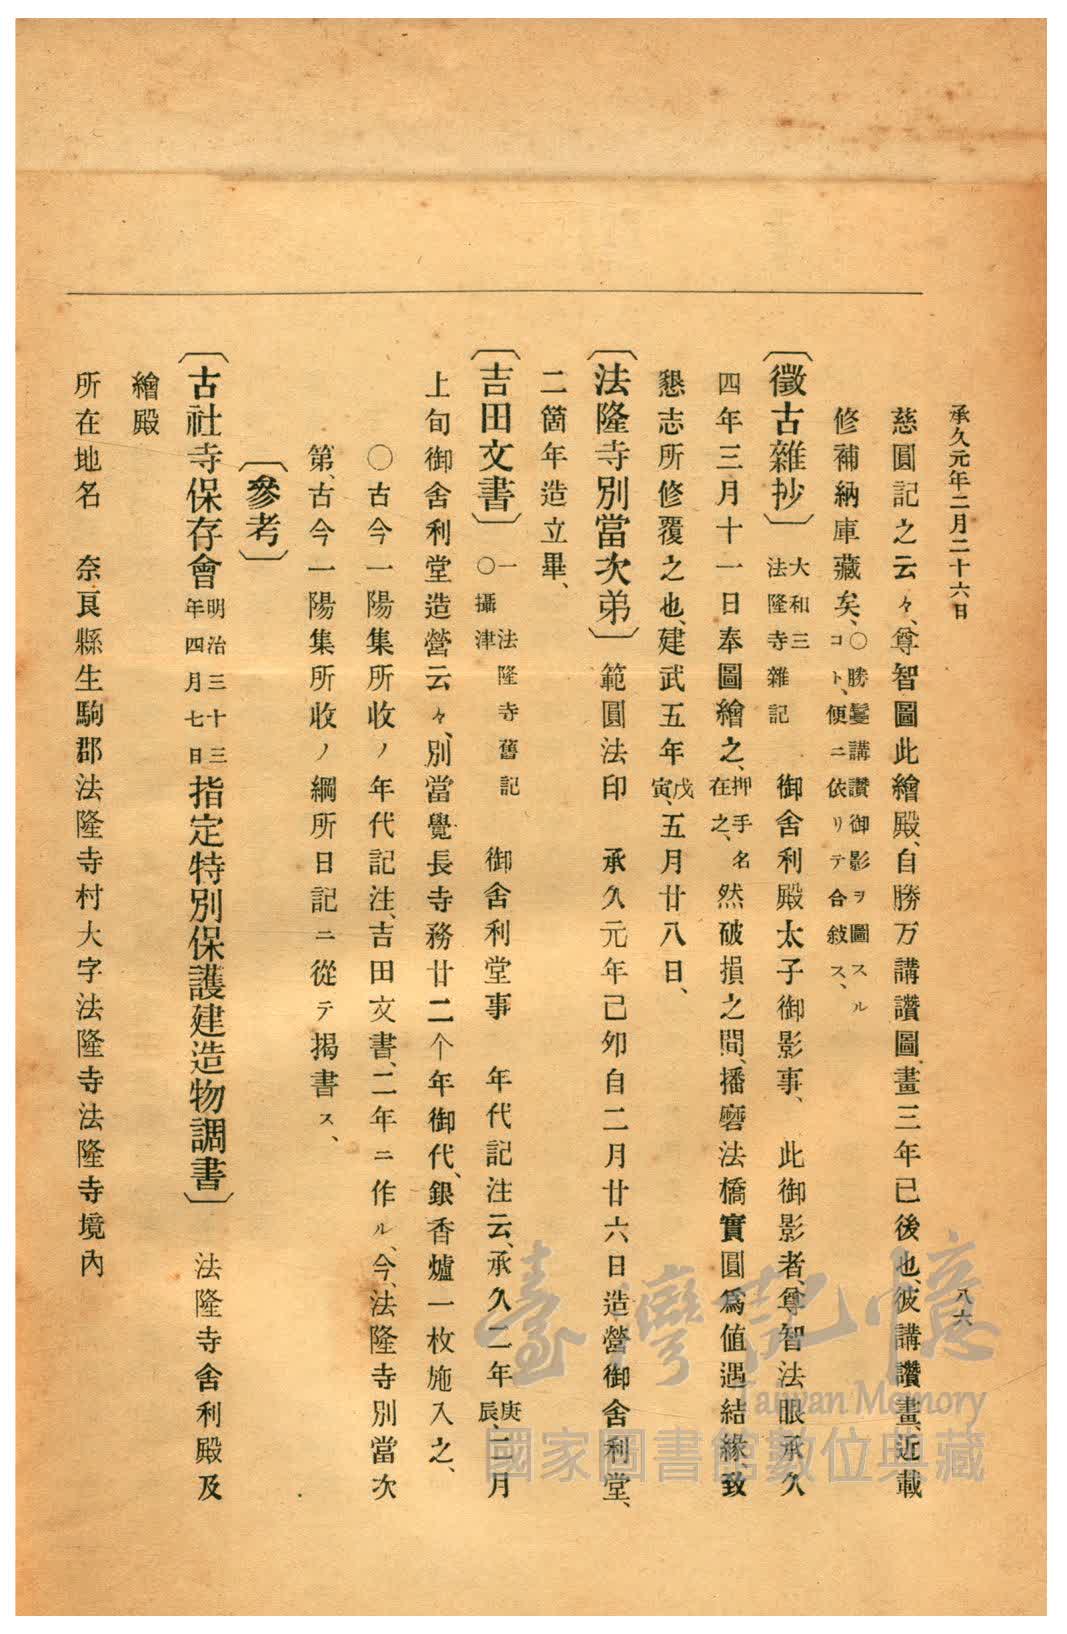 承久元年二月二十六日
八六
慈圓記之云々、尊智圖此繪殿、自勝万講讚圖畫三年已後也、彼講讚畫、近載
修補納庫藏矣、○勝鬘講讚御影ヲ圖スルコト、便ニ依リテ合敍ス、
〔徵古雜抄〕大和三法隆寺雜記 御舍利殿太子御影事、 此御影者、尊智法眼承久
四年三月十一日奉圖繪之、押手名在之、然破損之間、播磨法橋實圓爲値遇結緣、致
懇志所修覆之也、建武五年戊寅、五月廿八日、
〔法隆寺別當次弟〕 範圓法印 承久元年己夘自二月廿六日造營御舍利堂、
二箇年造立畢、
〔吉田文書〕一法隆寺舊記○攝津 御舍利堂事 年代記注云、承久二年庚辰、二月
上旬御舍利堂造營云々、別當覺長寺務廿二个年御代、銀香爐一枚施入之、
○古今一陽集所收ノ年代記注、吉田文書、二年ニ作ル、今、法隆寺別當次
第、古今一陽集所收ノ綱所日記ニ從テ揭書ス、
〔參考〕
〔古社寺保存會明治三十三年四月七日指定特別保護建造物調書〕 法隆寺舍利殿及
繪殿
所在地名 奈良縣生駒郡法隆寺村大字法隆寺法隆寺境內
臺灣記憶
Taiwan Memory
國家圖書館數位典藏